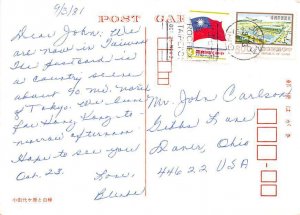 9/3/31
POST CARD
Dear John, We
are now in Taiwan
The postcard is
a country scene
about 70 mi. north
of Tokyo. We leave
for Hong Kong to-
morrow afternoon
Hope to see you
Oct. 23.
Love,
Mr. John Carlson
Gibbs Lane
Dover, Ohio
44622 USA